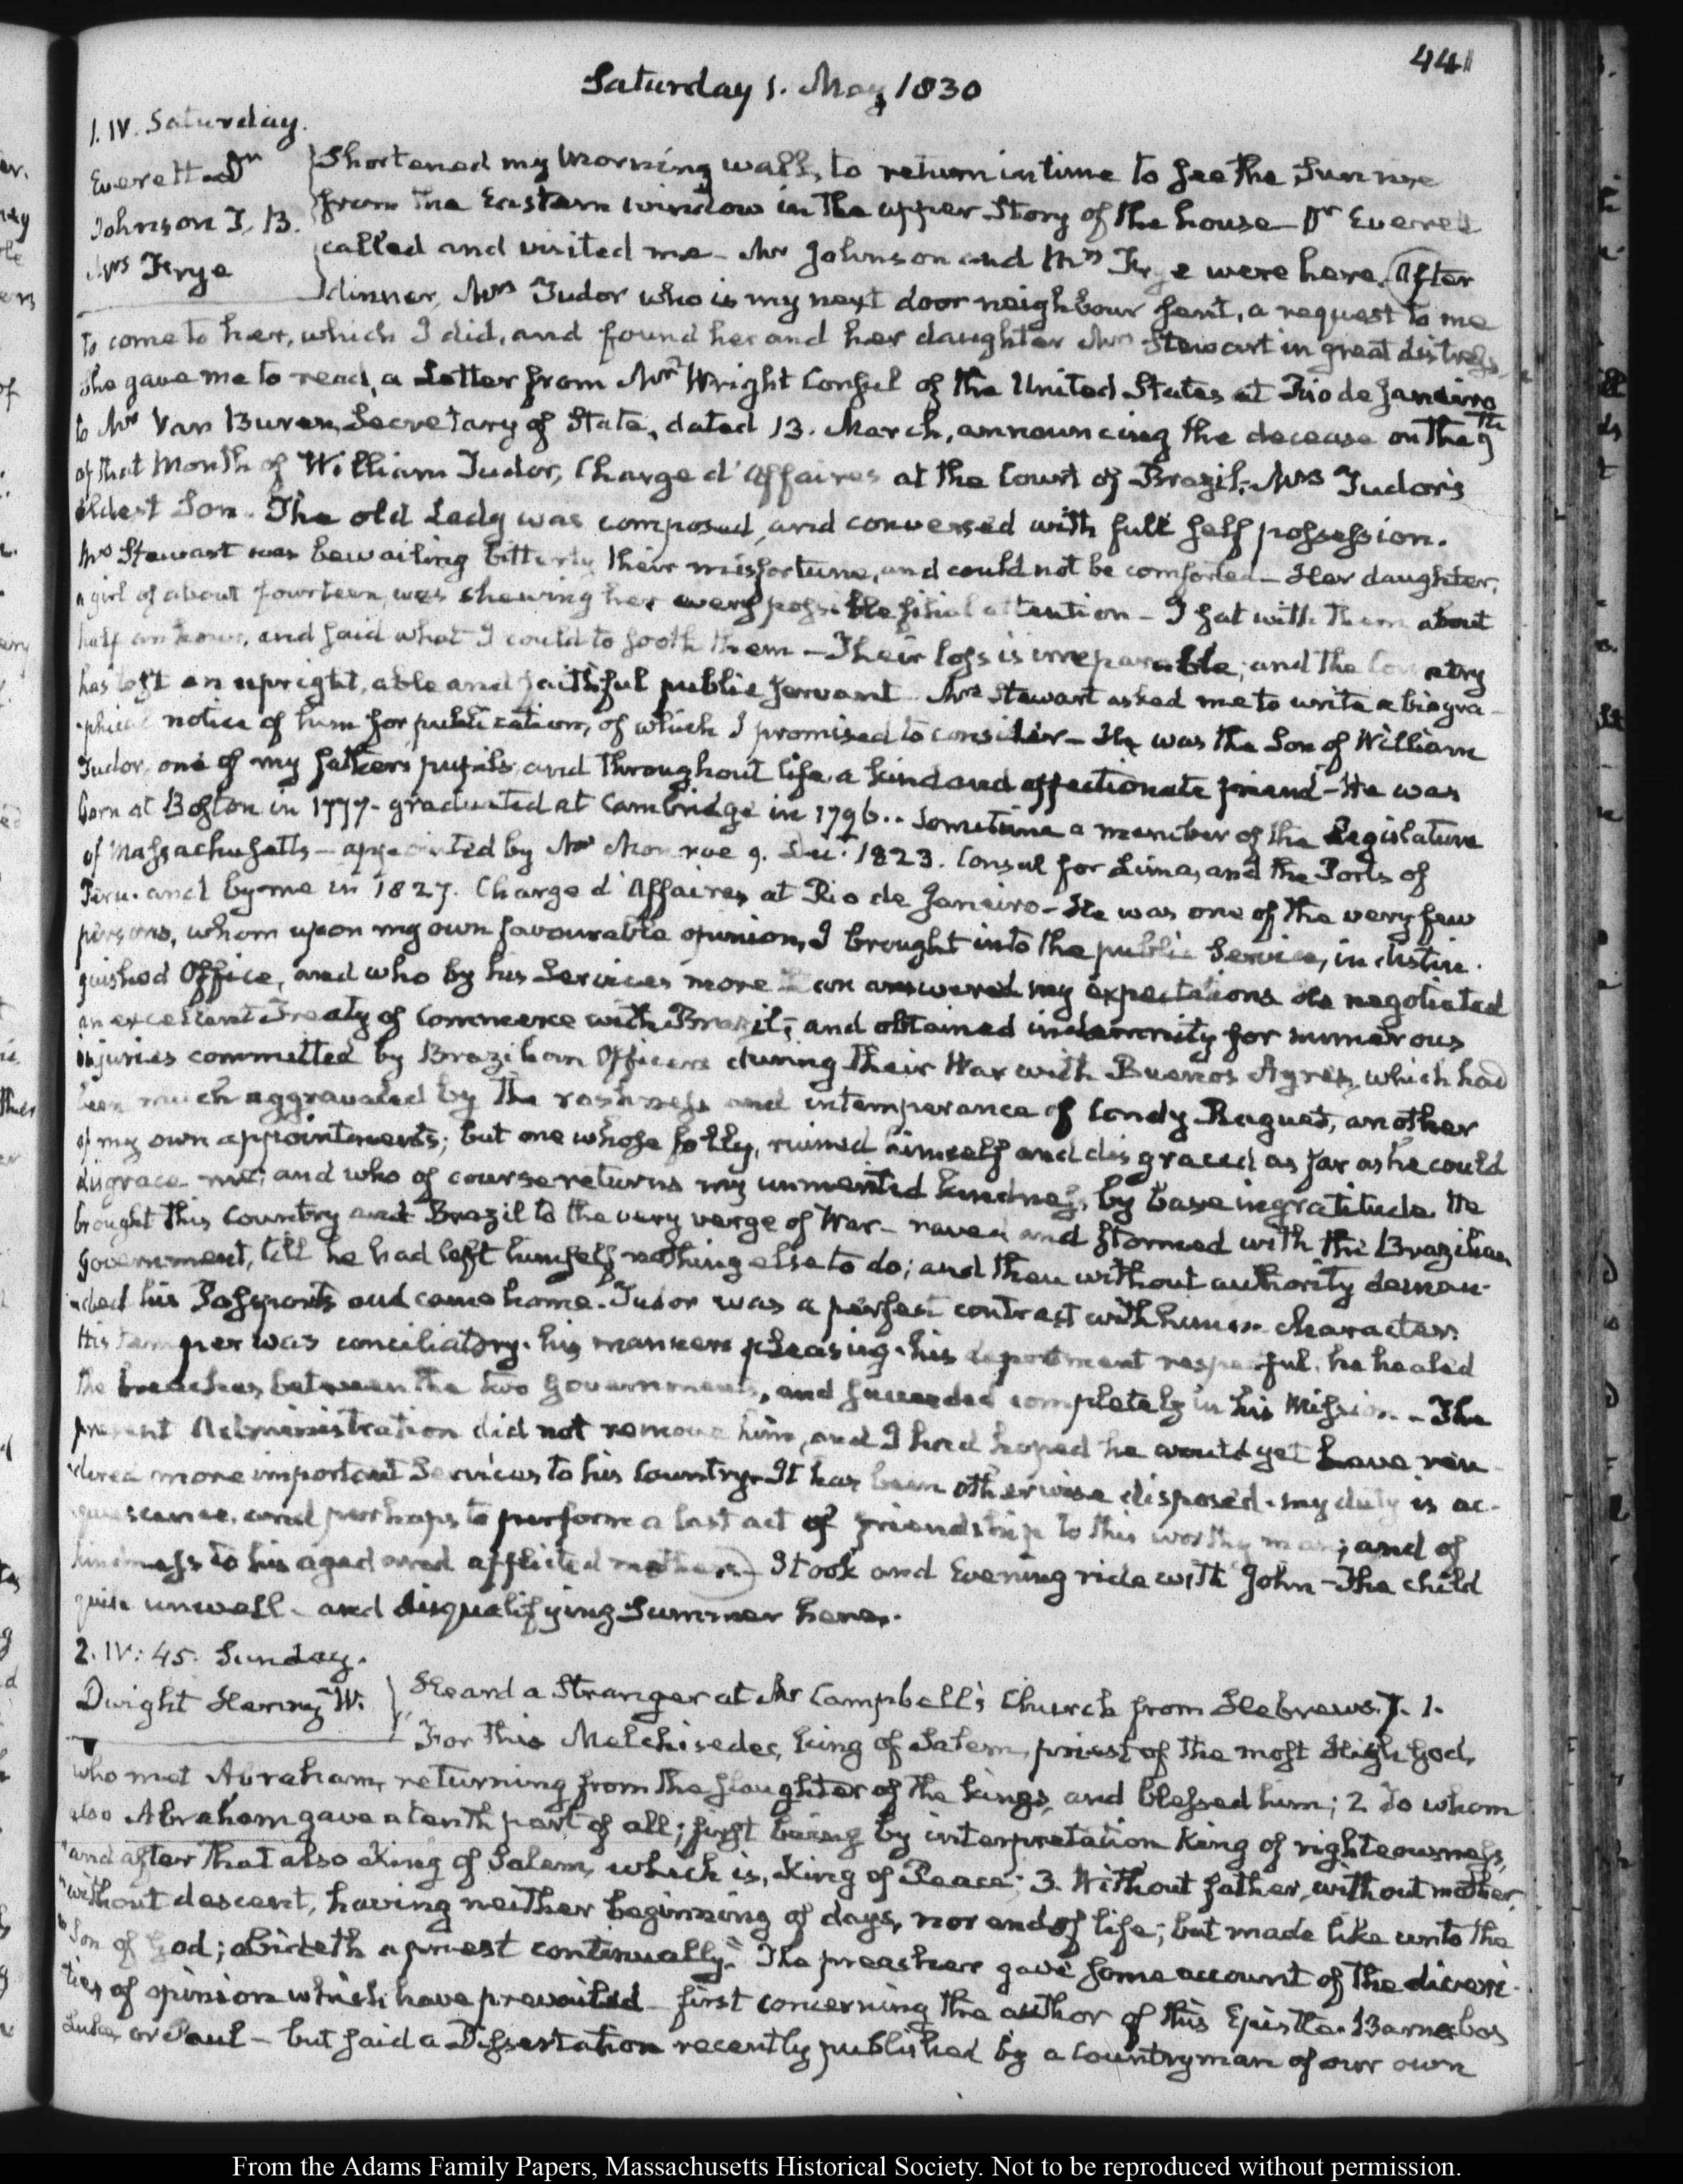 441
Saturday 1. May 1830
1. IV. Saturday.
Everett Dr
Johnson T. B.
Mrs Frye
Shortened my morning walk, to return in time to see the Sun rise
from the Eastern window in the upper Story of the house — Dr Everett
called and visited me — Mr Johnson and Mrs Frye were here. After
dinner, Mrs Tudor who is my next door neighbour sent, a request to me
to come to her, which I did, and found her and her daughter Mrs Stewart in great distress,
She gave me to read, a Letter from Mr Wright Consul of the United States at Rio de Janeiro
to Mr Van Buren, Secretary of State, dated 13. March, announcing the decease on the 9th
of that Month of William Tudor, Charge d'Affaires at the Court of Brazil, Mrs Tudor's
eldest Son. The old Lady was composed, and conversed with full self possession.
Mrs Stewart was bewailing bitterly their misfortune, and could not be comforted — Her daughter,
a girl of about fourteen, was shewing her every possible filial attention — I sat with them about
half an hour, and said what I could to sooth them — Their loss is irreparable; and the Country
has lost an upright, able and faithful public servant. Mrs Stewart asked me to write a biogra-
-phical notice of him for publication, of which I promised to consider — He was the Son of William
Tudor, one of my father's pupils, and throughout life a kind and affectionate friend — He was
born at Boston in 1777 - graduated at Cambridge in 1796.. Sometime a member of the Legislature
of Massachusetts — appointed by Mr Monroe 9. Decr 1823. Consul for Lima, and the Ports of
Peru. and by me in 1827. Charge d'Affaires at Rio de Janeiro — He was one of the very few
persons, whom upon my own favourable opinion, I brought into the public Service, in distin-
guished Office, and who by his Services more than answered my expectations. He negotiated
an excellent Treaty of Commerce with Brazil; and obtained indemnity for numerous
injuries committed by Brazilian Officers during their War with Buenos Ayres, which had
been much aggravated by the rashness and intemperance of Condy Raguet, another
of my own appointments; but one whose folly, ruined himself and disgraced as far as he could
disgrace me; and who of course returns my unmerited kindness, by base ingratitude. He
brought this Country and Brazil to the very verge of War — raved and stormed with the Brazilian
Government, till he had left himself nothing else to do; and then without authority deman-
-ded his Passports and came home. Tudor was a perfect contrast with him in character.
His temper was conciliatory. his manners pleasing. his deportment respectful. he healed
the breaches between the two Governments, and succeeded completely in his Mission. — The
present Administration did not remove him, and I had hoped he would yet have ren-
-dered more important Services to his Country. It has been otherwise disposed. my duty is ac-
quiescence, and perhaps to perform a last act of friendship to this worthy man; and of
kindness to his aged and afflicted mother. — I took and Evening ride with John — The child
quite unwell. and disqualifying Summer here.
2. IV: 45. Sunday.
Dwight Henry W.
Heard a Stranger at Mr Campbell's Church from Hebrews. 7. 1.
For this Melchisedec, King of Salem, priest of the most High God,
who met Abraham, returning from the slaughter of the Kings, and blessed him; 2 To whom
also Abraham gave a tenth part of all; first being by interpretation King of righteousness,
"and after that also King of Salem, which is, King of Peace; 3. Without father, without mother,
"without descent, having neither beginning of days, nor end of life; but made like unto the
"Son of God; abideth a priest continually." The preacher gave some account of the diversi-
ties of opinion which have prevailed — first concerning the author of this Epistle. Barnabas
Luke, or Paul — but said a Dissertation recently published by a Countryman of our own
From the Adams Family Papers, Massachusetts Historical Society. Not to be reproduced without permission.